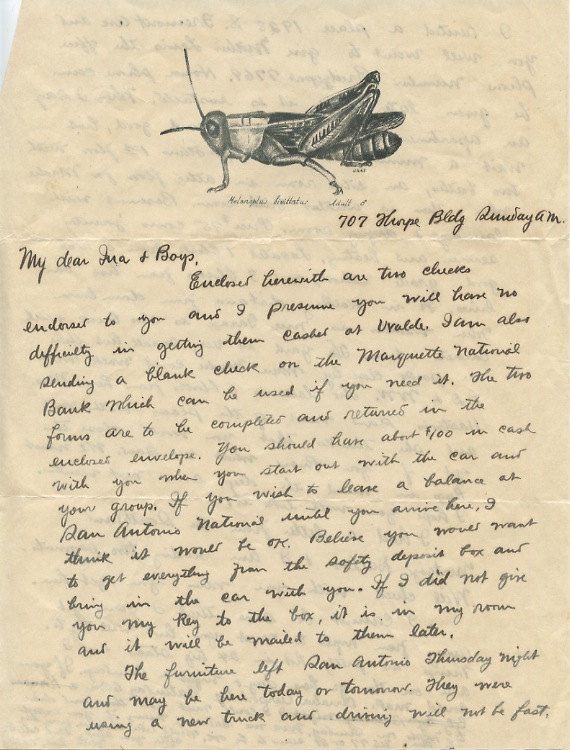 Melanoplus bivittatus Adult ♂
707 Thorpe Bldg Sunday A.M.
My dear Ina & Boys,
Enclosed herewith are two checks
endorsed to you and I presume you will have no
difficulty in getting them cashed at Uvalde. I am also
sending a blank check on the Marquette National
Bank which can be used if you need it. The two
forms are to be completed and returned in the
enclosed envelope. You should have about $100 in cash
with you when you start out with the car and
your group. If you wish to leave a balance at
San Antonio National until you arrive here, I
think it would be OK. Believe you would want
to get everything from the safty deposit box and
bring in the car with you. If I did not give
you my key to the box, it is in my room
and it will be mailed to them later.
The furniture left San Antonio Thursday night
and may be here today or tomorrow. They were
using a new truck and driving will not be fast.